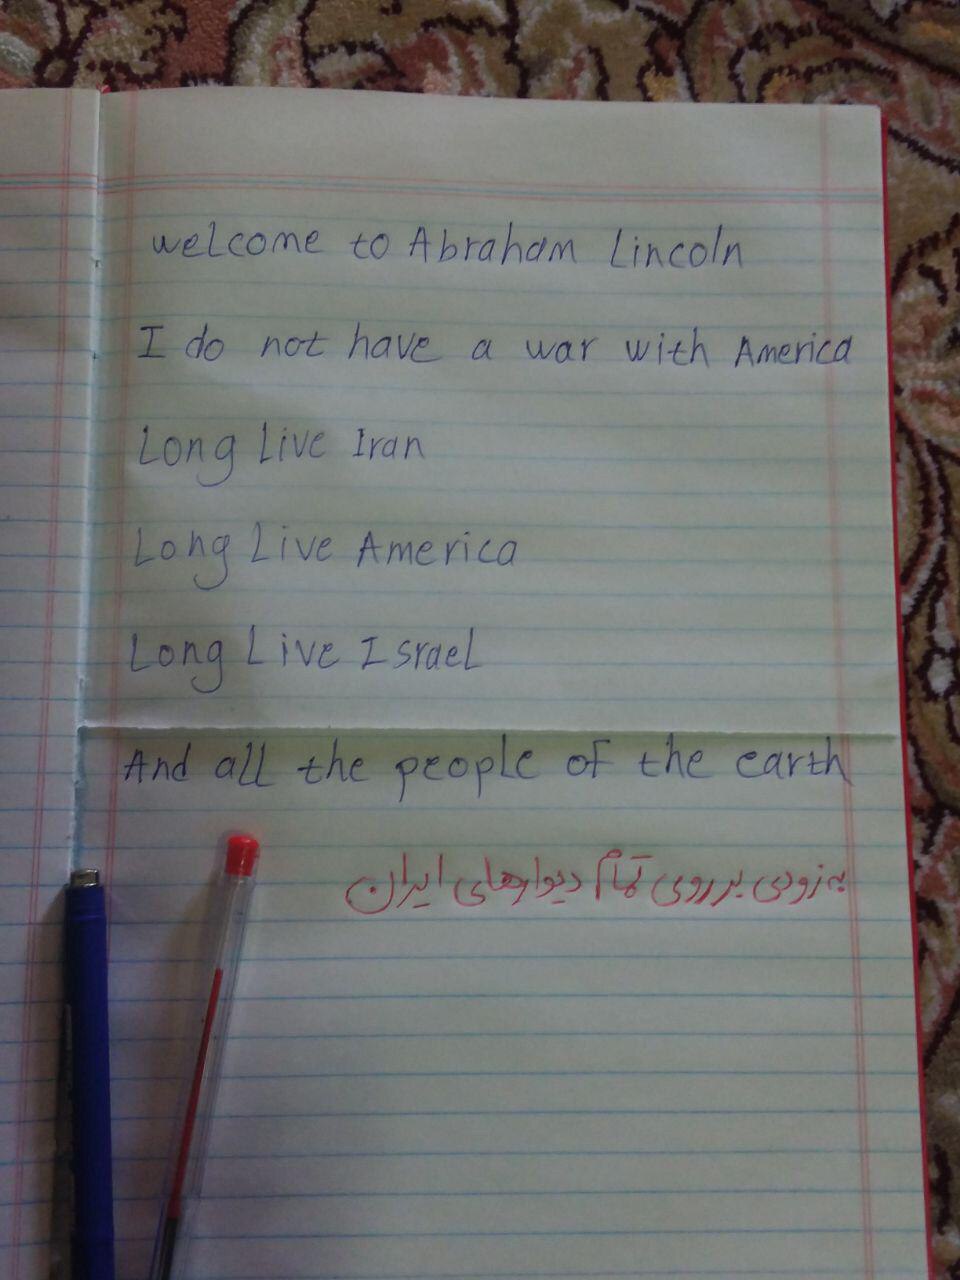 welcome to Abraham Lincoln
I do not have a war with America
Long Live Iran
Long Live America
Long Live Israel
And all the people of the earth
به زودی بر روی تمام دیوارهای ایران